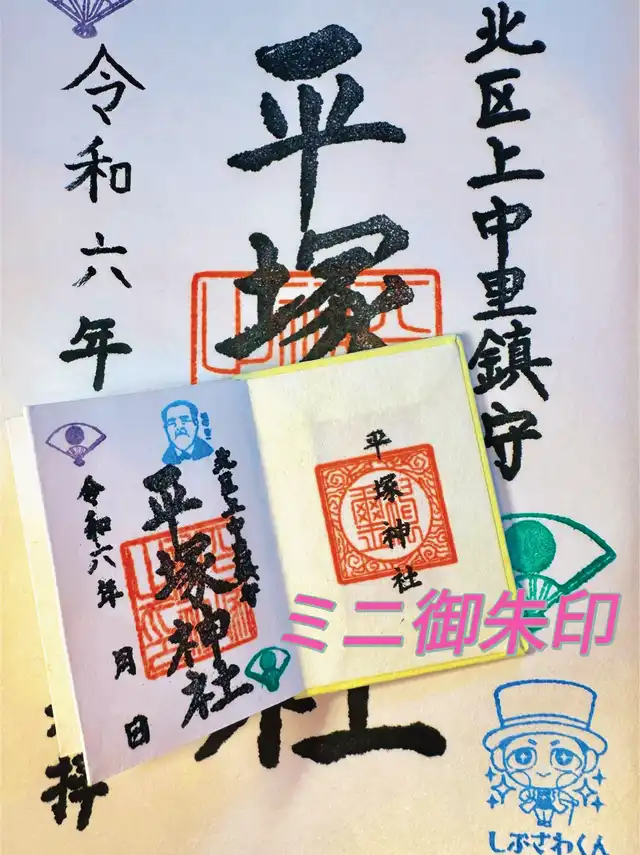 北区上中里鎮守
平塚
社
令和六年
拝
しぶざわくん
北区上中里鎮守
平塚神社
令和六年
月
日
平塚神社
ミニ御朱印